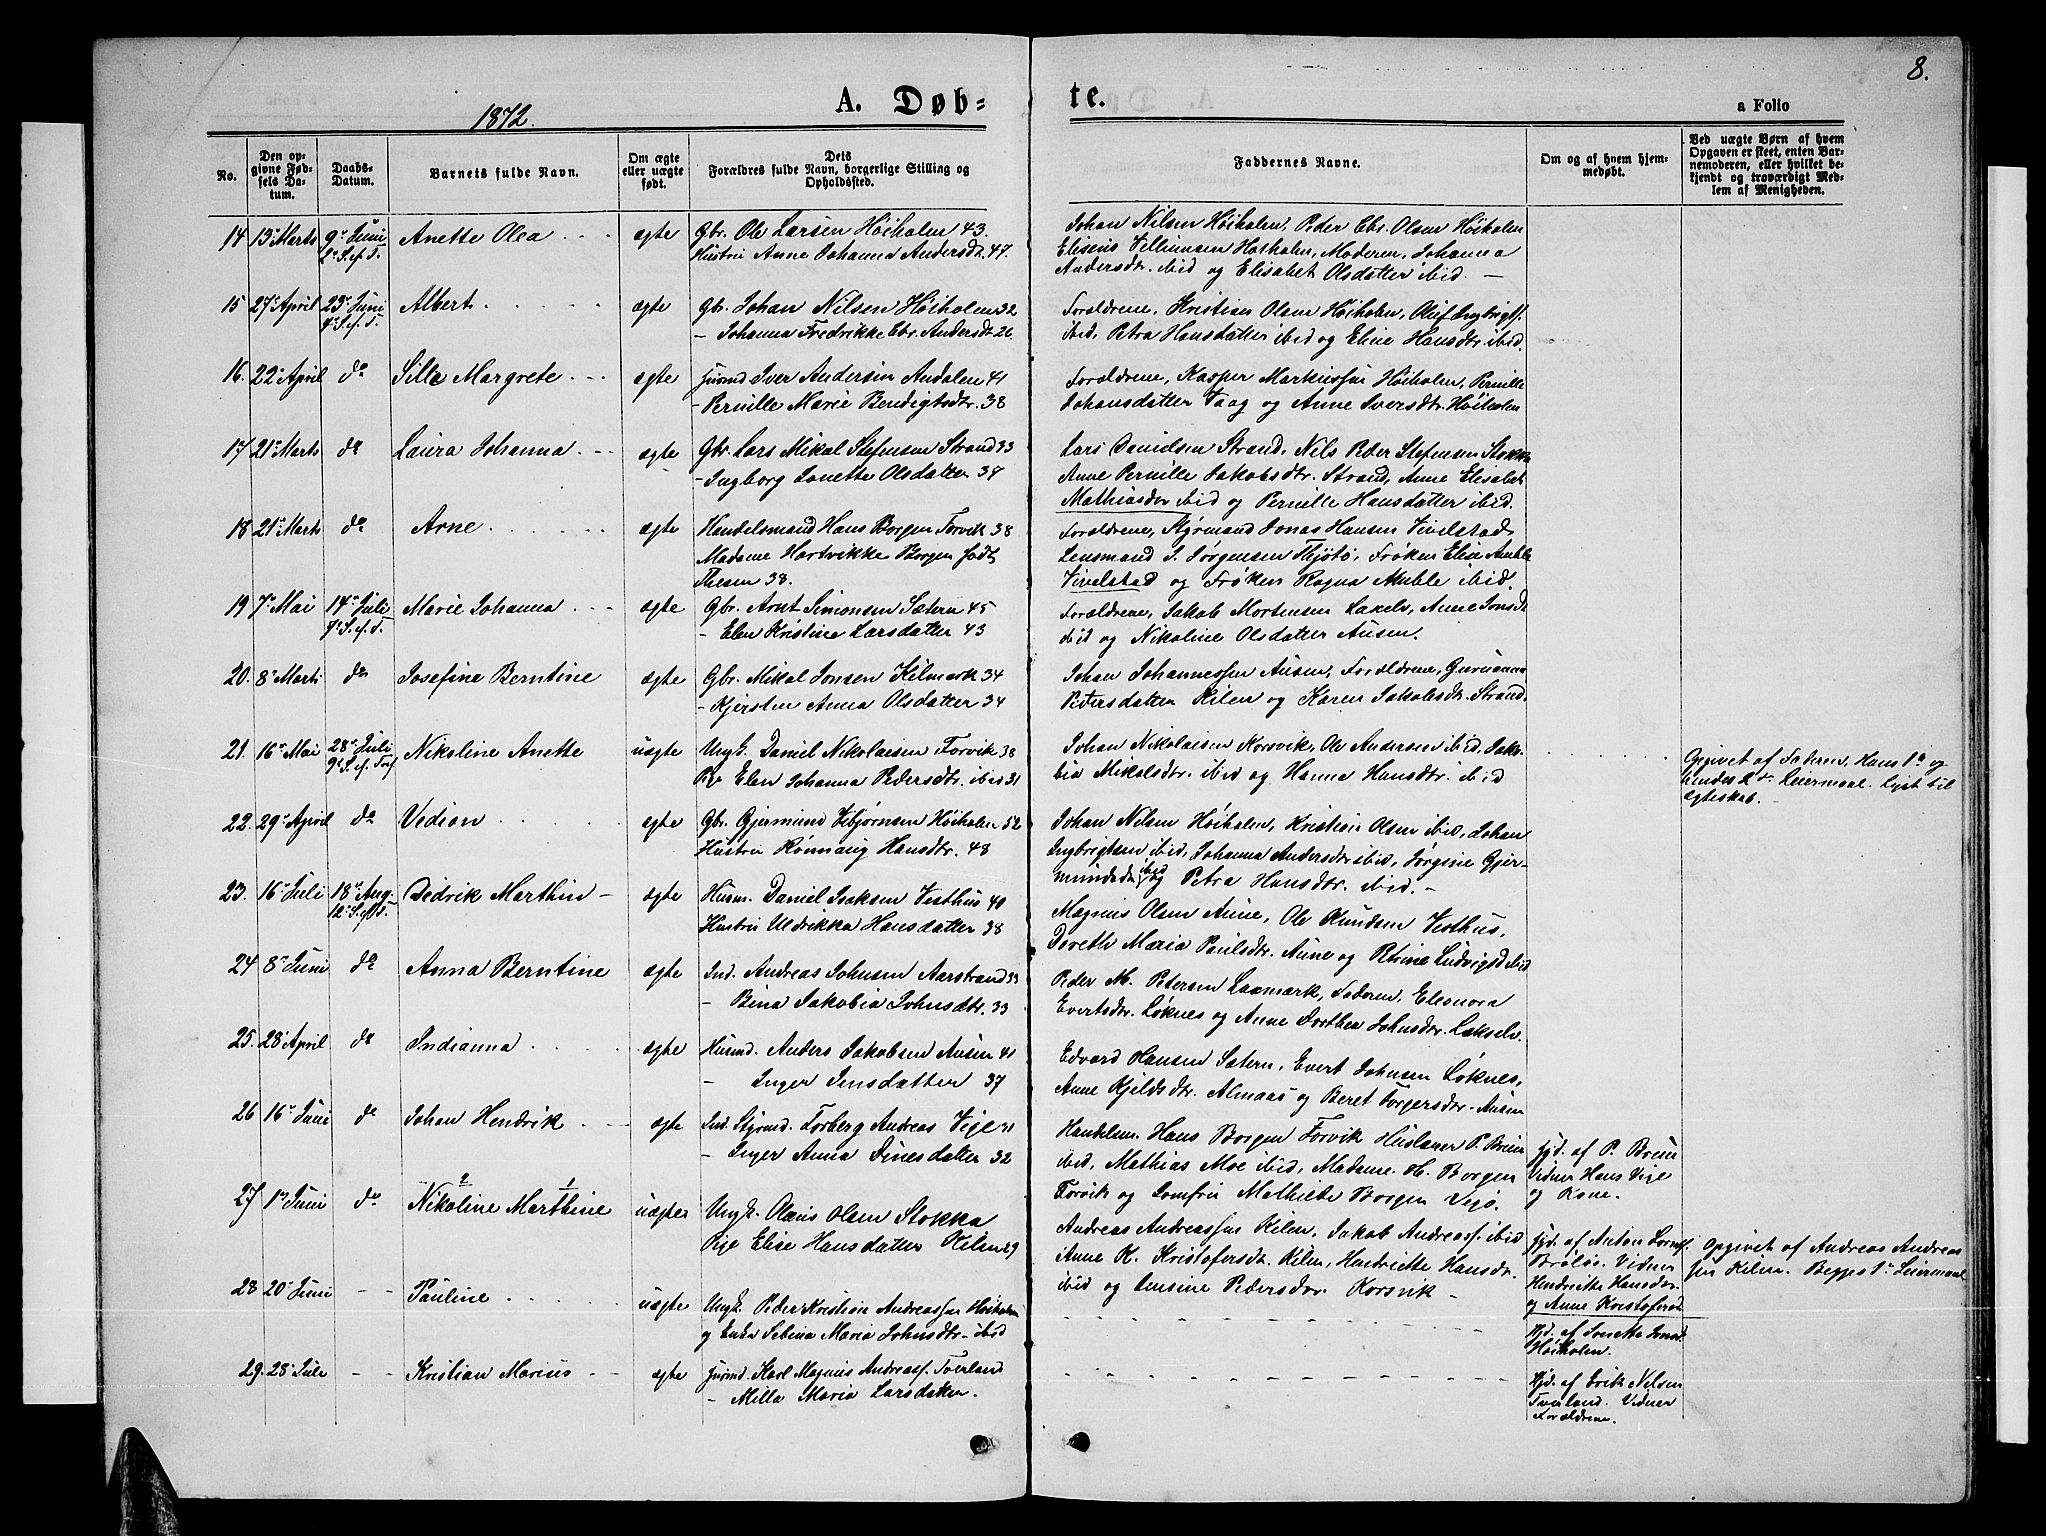 8.
1872.
A. Døb=
te.
a Folio
No.
Den op=
givne Fød=
sels Da=
tum.
Daabs=
Datum.
Barnets fulde Navn.
Om ægte
eller uægte
født.
Dets
Forældres fulde Navn, borgerlige Stilling og
Opholdssted.
Faddernes Navne.
Om og af hvem hjem=
medøbt.
Ved uægte Børn af hvem
Opgaven er skeet, enten Bar=
nemoderen, eller hvilket be=
kjendt og troværdigt Med=
lem af Menigheden.
14 13 Marts 9 Juni Anette Olea ægte Gbr. Ole Larsen Høiholm 43.
2 S. e. T. Hustru Anne Johanna Andersdtr. 47.
Johan Nilsen Høiholm, Peder Ebr. Olsen Høiholm
Eliseus Villumsen Høiholm, Moderen, Johanna
Andersdtr. ibid og Elisabet Olsdatter ibid.
15 27 April 23 Juni Albert ægte Gbr. Johan Nilsen Høiholm 32
4 S. e. T. Johanna Fredrikke Ebr. Andersdt. 26
Forældrene, Kristian Olsen Høiholm, Oluf Ingbrigtss.
ibid, Petra Hansdatter ibid og Eline Hansdtr. ibid.
16. 22 April do Sille Margrete ægte Iver Andersen Andalen 41
- Pernille Marie Bendigtsdtr. 38
Forældrene, Kasper Markussen Høiholm, Pernille
Johansdatter Vaag og Anne Iversdtr. Høiholm
17 21 Marts do Laura Johanna ægte Gbr. Lars Mikal Stefensen Strand 33
- Ingborg Lonette Olsdatter 34
Lars Danielsen Strand, Nils Peder Stefensen Stokka
Anne Pernille Jakobsdtr. Strand, Anne Elisabet
Mathiasdtr ibid og Pernille Hansdatter ibid.
18 21 Marts do Arne ægte Handelsmand Hans Borgen Forvik 38
Madame Hartvikke Borgen født
Thesen 38.
Forældrene, Styrmand Jonas Hansen Vivelstad,
Lensmand J. Jørgensen Thjøtø, Frøken Elise
Vivelstad og Frøken Ragna Muhle ibid.
19 7 Mai 14 Juli Marie Johanna ægte Gbr. Arnt Simonsen Sætern 45
7 S. e. T. - Elen Kristine Larsdatter 43
Forældrene, Jakob Mortensen Laxelv, Anne Jonsd.
ibid og Nikoline Olsdatter Ausen.
20. 8 Marts do Josefine Berntine ægte Gbr. Mikal Jonsen Kilmark 34
- Kjersten Anna Olsdatter 34
Johan Johannessen Ausen, Forældrene, Guruanna
Pedersdatter Kilen og Karen Jakobsdtr. Strand.
21. 16 Mai 28 Juli Nikoline Anette uægte Ungk. Daniel Nikolaisen Forvik 38
9 S. e. Tref Pg. Elen Johanna Pedersdtr. ibid 31
Johan Nikolaisen Korsvik, Ole Andersen ibid, Jako-
bia Mikalsdtr. ibid og Hanna Hansdtr. ibid
Opgivet af Faderen, Hans 1ste og
hendes 2det Leiermaal. Lyst til
Ægteskab.
22. 29 April do Vedion ægte Gbr. Gjermund Vebjørnsen Høiholm 52
Hustru Rønnaug Hansdtr. 48
Johan Nilsen Høiholm, Kristian Olsen ibid, Johan
Ingbrigtsen ibid, Johanna Andersdtr ibid, Jørgine Gjer-
mundsdtr ibid og Petra Hansdtr. ibid.
23. 16 Juli 18 Aug Didrik Marthin ægte Husm. Daniel Isaksen Vesthus 40
12 S. e. T. Hustru Uldrikka Hansdatter 38
Magnus Olsen Aune, Ole Knudsen Vesthus,
Doreth Maria Paulsdtr. Aune og Ludvigsd ibid
24 8 Juni do Anna Berntine ægte Ind. Andreas Johnsen Aarstrand 33
- Bina Jakobia Johnsdtr. 33
Peder M. Petersen Laxmark, Faderen, Eleonora
Evertsdtr. Løknes og Anne Dorthea Johnsdtr. Lakselv.
25. 28 April do Indianna ægte Husmd. Anders Jakobsen Ausen 41
- Inger Jensdatter 37
Edvard Hansen Sætern, Evert Johnsen Løknes,
Anne Kjeldsdtr. Almaas og Beret Torgersdtr. Ausen
26 16 Juni do Johan Hendrik ægte Ind. Styrmd. Torberg Andreas Vige 31
- Inger Anna Dinesdatter 32
Handelsm. Hans Borgen Forvik Huslærer P. Bruun
ibid, Mathias Moe ibid, Madame H. Borgen
Forvik og Jomfru Mathilde Borgen Vegø.
Hjd. af P. Bruun
Vidner Hans Vige
og Kone.
27 1 Juni do Nikoline Marthine uægte Ungk. Olaus Olsen Stokka
Pige Elise Hansdatter Kilen 29
Andreas Andreassen Kilen, Jakob Andreass. ibid
Anne K. Kristofersdtr. Kilen, Hendriette Hansdtr.
ibid og Ensine Pedersdtr. Korsvik
Hjd. af Anton
Vidner
Hendrikke Hansdtr
og Anne Kristofersd
Opgivet af Andreas Andreas
sen Kilen. Begges 1ste Leiermaal
28 20 Juni - - Pauline uægte Ungk. Peder Kristian Andreassen Høiholm
og Enke Sebina Maria Johnsdtr. ibid
Hjd. af Jonetta
Høiholm.
29. 28 Juli - - Kristian Marius ægte Karl Magnus Andreass. Tverland
- Milla Maria Larsdatter.
Hjd. af Erik Nilsen
Tverland. Vidner
Forældrene.